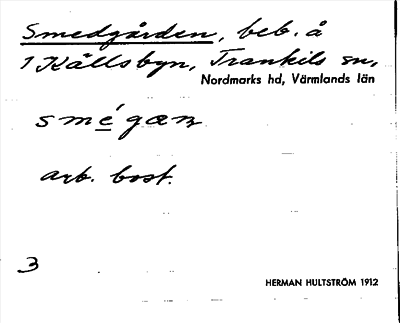 Smedgården, beb. å
1 Källsbyn, Trankils sn,
Nordmarks hd, Värmlands län
smé̱gæn
arb. bost.
3
HERMAN HULTSTRÖM 1912